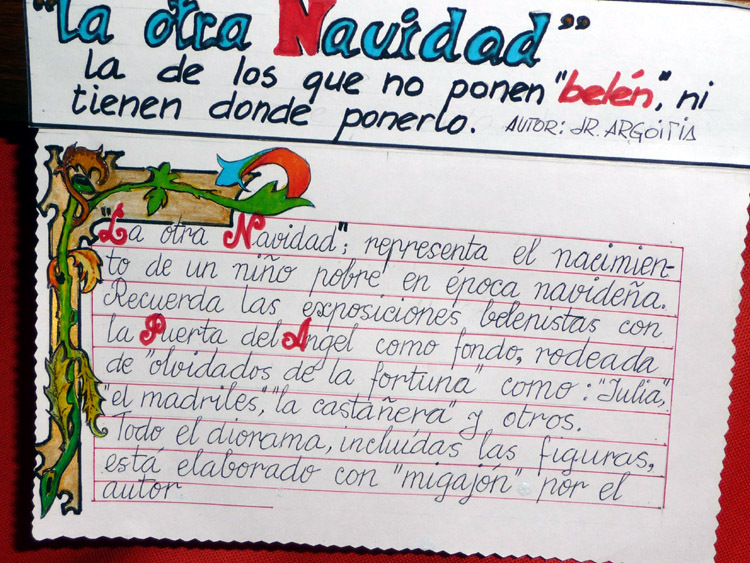 "La otra Navidad"
la de los que no ponen "belén", ni
tienen donde ponerlo. AUTOR: JR. ARGOITIA
"La otra Navidad"; representa el nacimien-
to de un niño pobre en época navideña.
Recuerda las exposiciones belenistas con
la Puerta del Angel como fondo, rodeada
de "olvidados de la fortuna" como: "Julia",
"el madriles", "la castañera" y otros.
Todo el diorama, incluídas las figuras,
está elaborado con "migajón" por el
autor